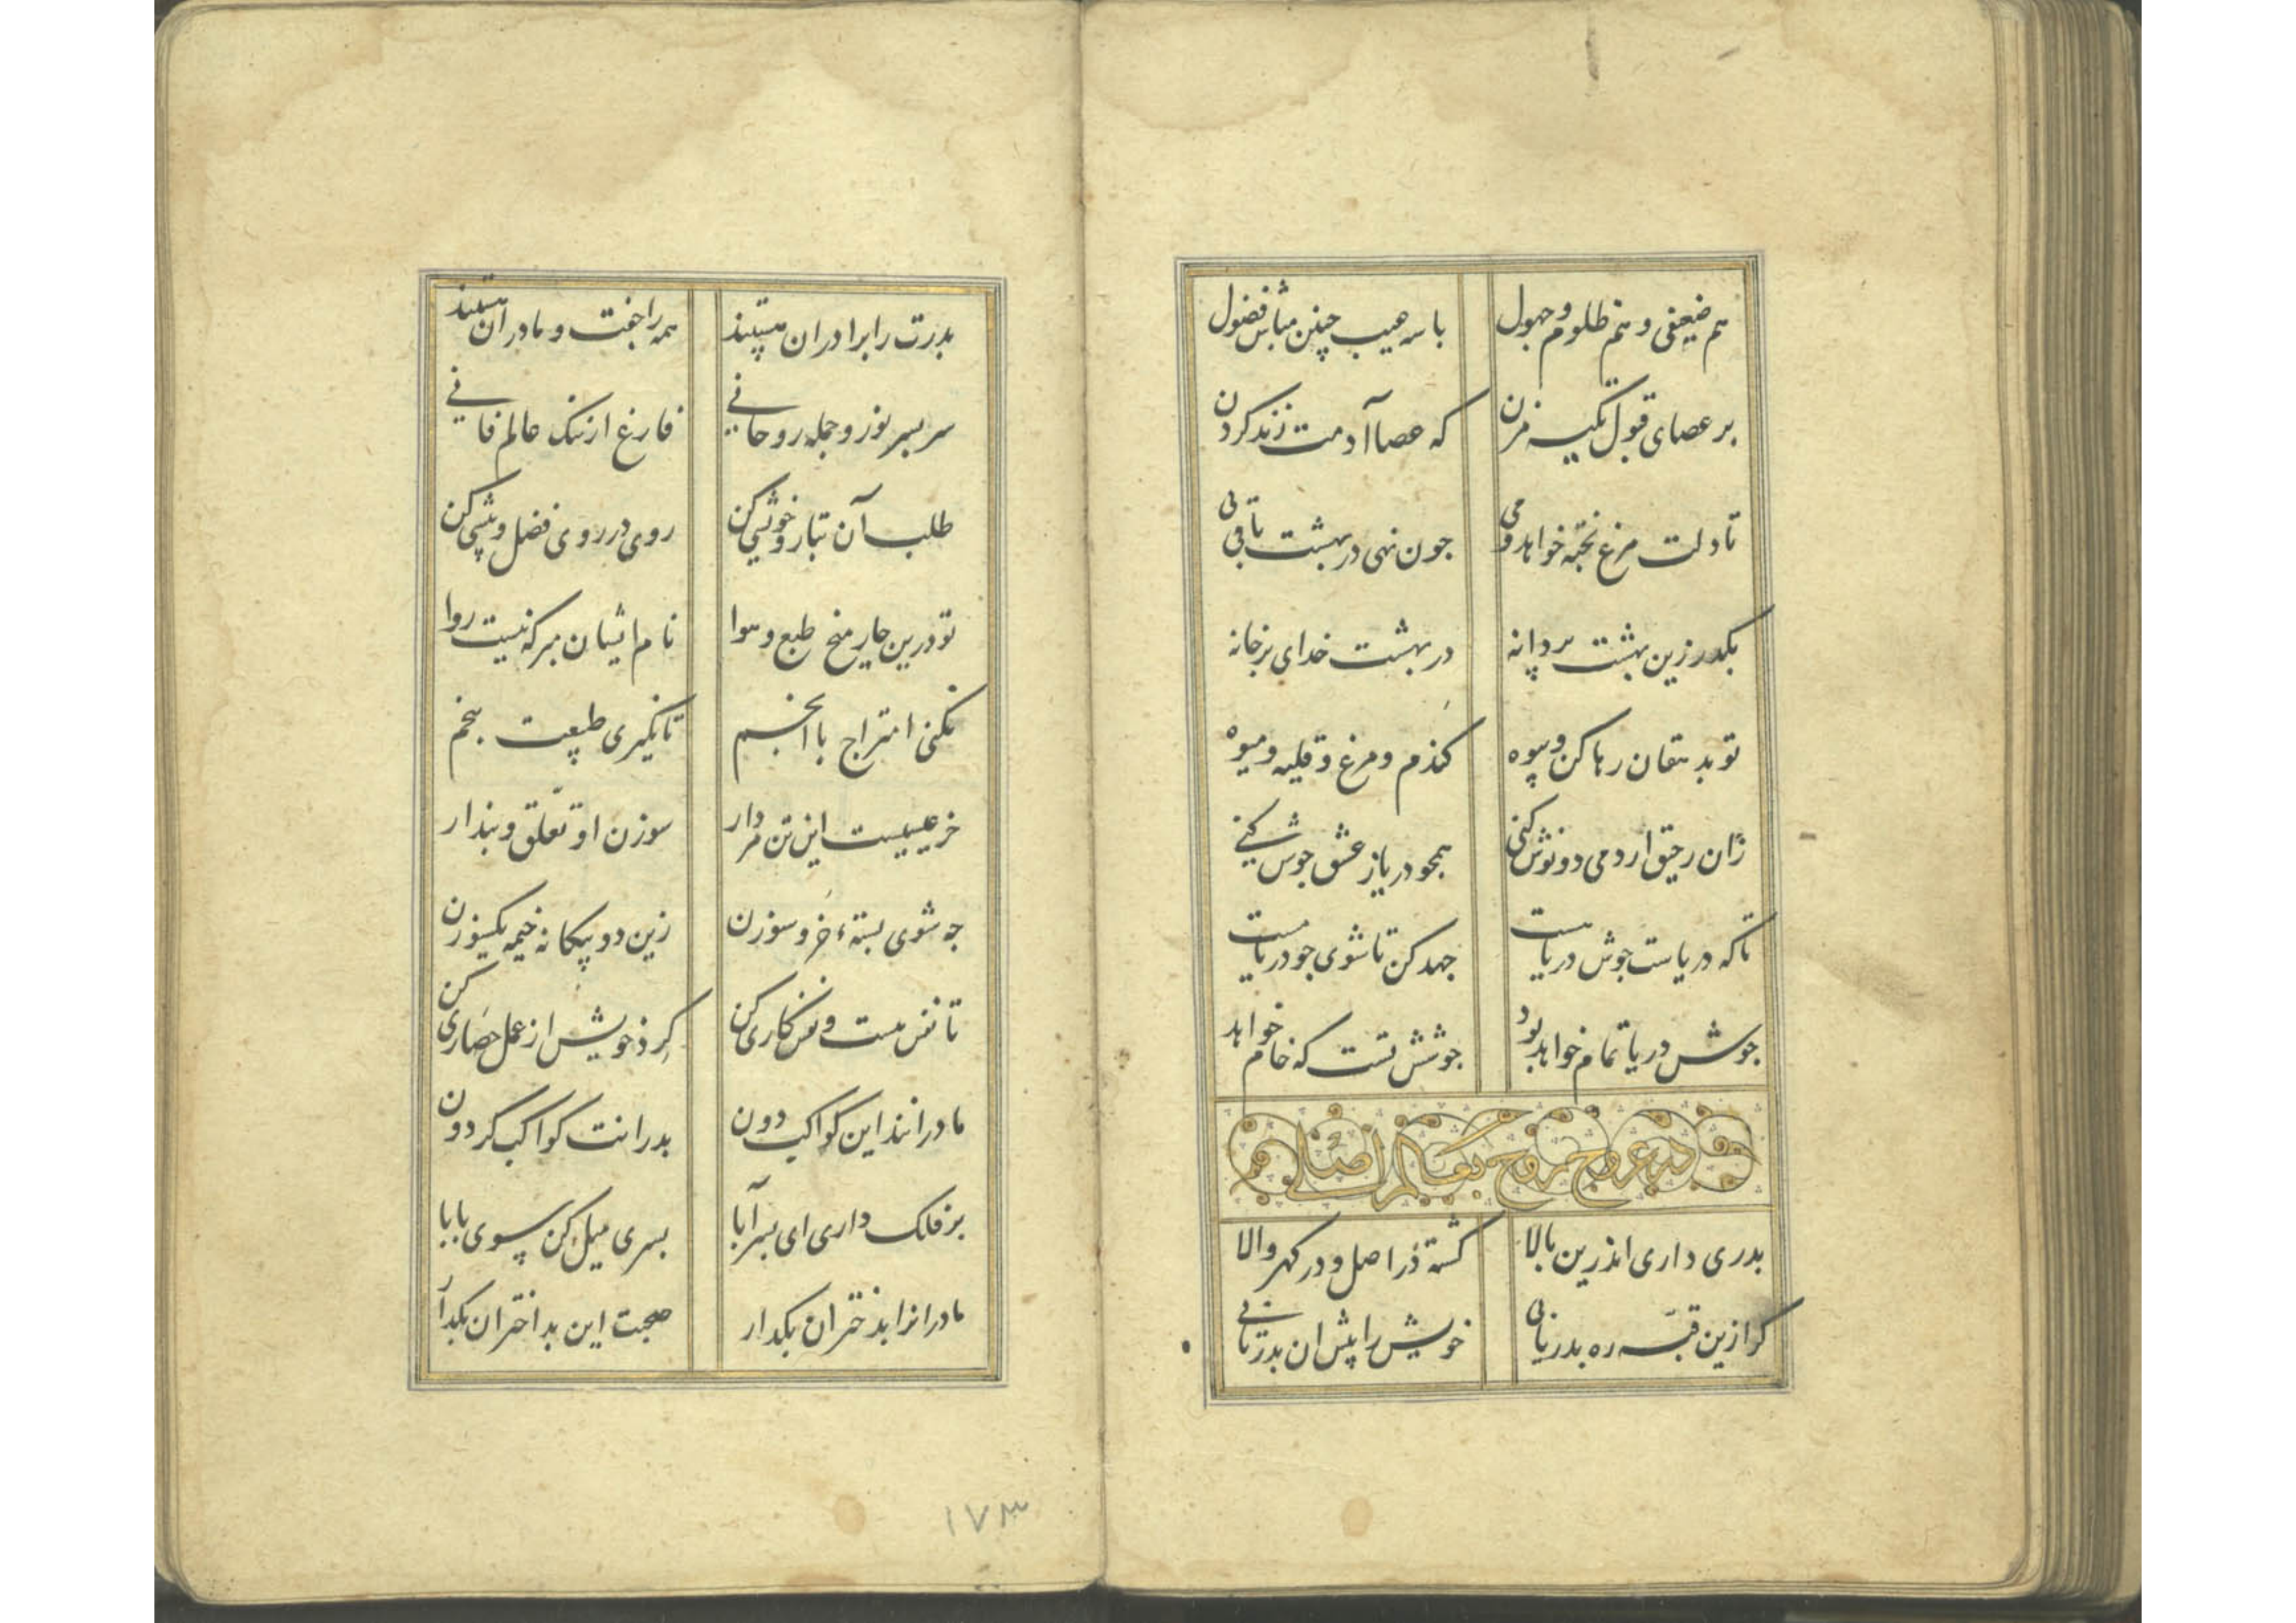 هم ضعیفی و هم ظلوم و جهول با سه عیب چنین مباش فضول
بر عصای قبول تکیه مزن که عصا آدمت زند کردن
تا دلت مرغ پخته خواهد و می چون نهی در بهشت باقی پی
بکذر زین بهشت پر دانه در بهشت خدای بر خانه
تو بدهقان رها کن و بیوه کندم و مرغ و قلیه و میوه
زان رحیق ار دمی دو نوش کنی همچو دریا ز عشق جوش کنی
تا که دریاست جوش دریا هست جهد کن تا شوی چو دریا مست
جوش دریا تمام خواهد بود جوشش تست که خام خواهد
در عروج روح بعالم اصلی
بدری داری اندرین بالا کشته در اصل و در کهر والا
کر ازین قبه ره بدر یابی خویش را پیش ان بدر یابی
بدرت را برادران هستند همه را جفت و مادران هستند
سر بسر نور و جمله روحانی فارغ از ننک عالم فانی
طلب آن تبار و خویشی کن روی در روی فضل و بیشی کن
تو درین چار میخ طبع و هوا نام ایشان مبر که نیست روا
نکنی امتزاج با انجم تا نکیری طبیعت پنجم
خر عیسیست این تن مردار سوزن او تعلق و پندار
چه شوی بسته خر و سوزن زین دو بیکانه خیمه یکسو زن
تا نفس هست و نفس کاری کن کرد خویش از عمل حصاری کن
مادرانند این کواکب دون بدرانت کواکب کردون
بر فلک داری ای بسر آبا بسری میل کن بسوی بابا
مادرانرا بدختران بکذار صحبت این بد اختران بکذار
۱۷۳